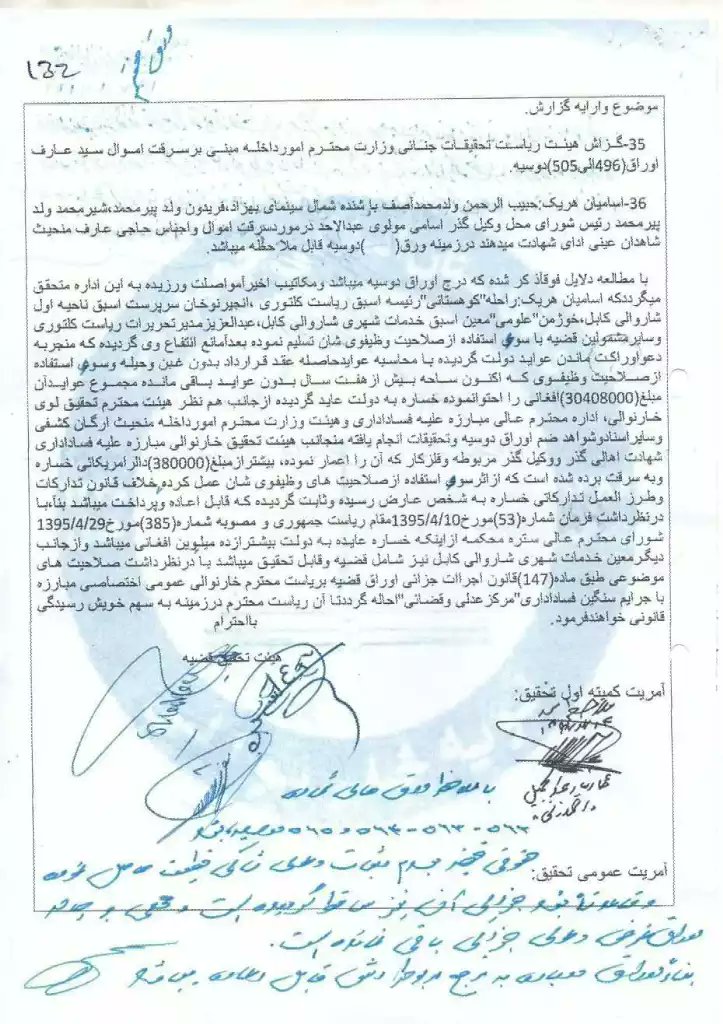 132
موضوع وارایه گزارش.
35-گزاش هیئت ریاست تحقیقات جنائی وزارت محترم امورداخله مبنی برسرقت اموال سید عارف
اوراق(496الی505)دوسیه.
36-اسامیان هریک:حبیب الرحمن ولدمحمدآصف باشنده شمال سینمای بهزاد،فریدون ولد پیرمحمد،شیرمحمد ولد
پیرمحمد رئیس شورای محل وکیل گذر اسامی مولوی عبدالاحد درموردسرقت اموال واجناس حاجی عارف منحیث
شاهدان عینی ادای شهادت میدهند درزمینه ورق( )دوسیه قابل ملاحظه میباشد.
با مطالعه دلایل فوقاذکر شده که درج اوراق دوسیه میباشد ومکاتیب اخیرآمواصلت ورزیده به این اداره متحقق
میگرددکه اسامیان هریک:راحله"کوهستانی"رئیسه اسبق ریاست کلتوری ،انجینرنوخان سرپرست اسبق ناحیه اول
شاروالی کابل،خوژمن"علومی"معین اسبق خدمات شهری شاروالی کابل،عبدالعزیزمدیرتحریرات ریاست کلتوری
وسایرمشمولین قضیه با سوی استفاده ازصلاحیت وظیفوی شان تسلیم نموده بعدآمانع انتفاع وی گردیده که منجربه
دعواوراکت ماندن عواید دولت گردیده با محاسبه عوایدحاصله عقد قرارداد بدون غبن وحیله وسوی استفاده
ازصلاحیت وظیفوی که اکنون ساحه بیش ازهفت سال بدون عواید باقی مانده مجموع عوایدآن
مبلغ(30408000)افغانی را احتوانموده خساره به دولت عاید گردیده ازجانب هم نظر هیئت محترم تحقیق لوی
خارنوالی، اداره محترم عالی مبارزه علیه فساداداری وهیئت وزارت محترم امورداخله منحیث ارگان کشفی
وسایراسنادوشواهد ضم اوراق دوسیه وتحقیقات انجام یافته منجانب هیئت تحقیق خارنوالی مبارزه علیه فساداداری
شهادت اهالی گذر ووکیل گذر مربوطه وقلزکار که آن را اعمار نموده، بیشترازمبلغ(380000)دالرآمریکائی خساره
وبه سرقت برده شده است که ازاثرسوی استفاده ازصلاحیت های وظیفوی شان عمل کرده خلاف قانون تدارکات
وطرز العمل تدارکاتی خساره به شخص عارض رسیده وثابت گردیده که قابل اعاده وپرداخت میباشد بنآءبا
درنظرداشت فرمان شماره(53)مورخ1395/4/10مقام ریاست جمهوری و مصوبه شماره(385)مورخ1395/4/29
شورای محترم عالی ستره محکمه ازاینکه خساره عایده به دولت بیشترازده میلوین افغانی میباشد وازجانب
دیگرمعین خدمات شهری شاروالی کابل نیز شامل قضیه وقابل تحقیق میباشد با درنظرداشت صلاحیت های
موضوعی طبق ماده(147)قانون اجراات جزائی اوراق قضیه بریاست محترم خارنوالی عمومی اختصاصی مبارزه
با جرایم سنگین فساداداری"مرکزعدلی وقضائی"احاله گرددتا آن ریاست محترم درزمینه به سهم خویش رسیدگی
قانونی خواهندفرمود.
بااحترام
هیئت تحقیق قضیه
آمریت کمیته اول تحقیق:
آمریت عمومی تحقیق: